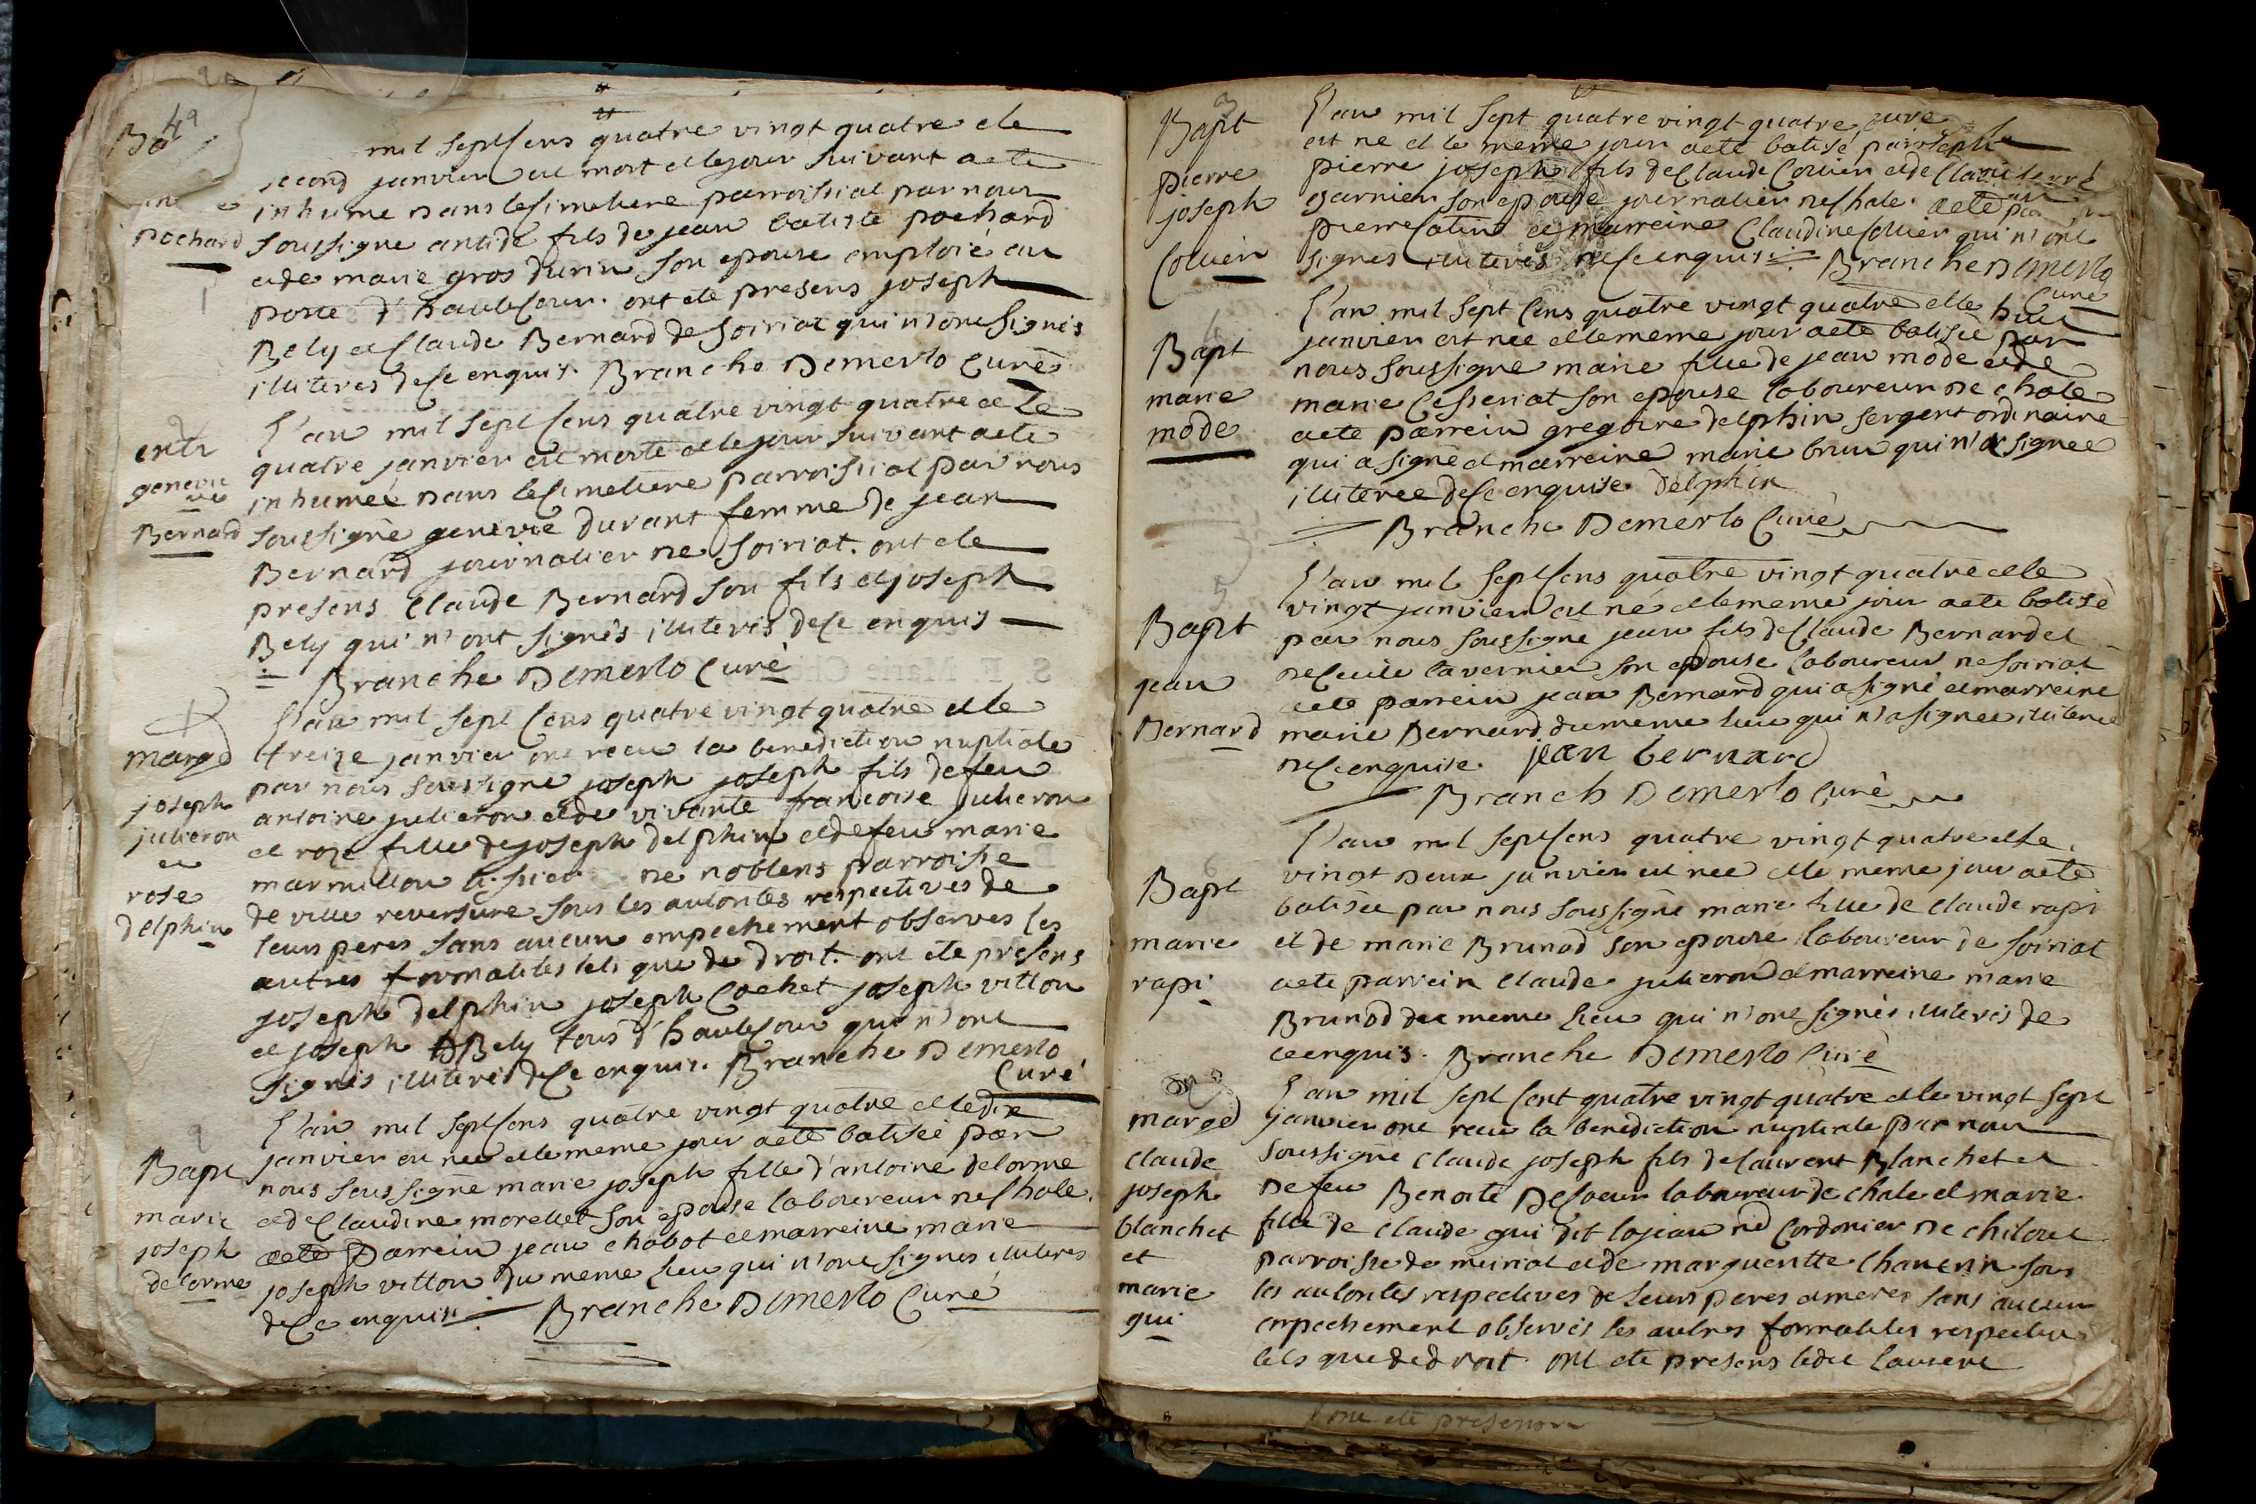 mil septsens quatre vingt quatre ele
second janvier est mort et lejour suivant aete
inhume dans lesimetiere parroissial par nous
soussigne antide fils de jean batiste pochard
et de marie gros durin son epouse emploié au
poste d'hautecour. ont ete presens joseph
Bely et Claude Bernard de soiriat qui n'ont signés
illiteres dece enquis. Branche Demerlo Curé
pochard
L'an mil sept sens quatre vingt quatre et le
quatre janvier est morte et le jour suivant aete
inhumée dans lesimetiere parroissial par nous
soussigné genevie durant femme de jean
Bernard journalier de soiriat. ont ete
presens Claude Bernard son fils et joseph
Bely qui n'ont signés illiterés dece enquis
Branche Demerlo Curé
entr
genevie
Bernard
L'an mil sept sens quatre vingt quatre et le
treize janvier ont recu la benediction nuptiale
par nous soussigne joseph joseph fils defeu
antoine julieron et de vivante francoise julieron
et roze fille de joseph delphin et defeu marie
marmillon de noblens parroisse
de ville reversure sous les autorités respectives de
leurs peres sans aucun empechement observes les
autres formalites tels que de droit. ont ete presens
joseph delphin joseph Cochet joseph vitton
et joseph Bely tous d'hautecour qui n'ont
signés illiterés dece enquis. Branche Demerlo
Curé
margd
joseph
julieron
et
rose
delphin
L'an mil septsens quatre vingt quatre et ledix
janvier est née et le meme jour aete batisée par
nous soussigne marie joseph fille d'antoine delorme
et de Claudine morellet son epouse laboureur de chale.
aete parrein jean chabot et marreine marie
joseph vitton du meme lieu qui n'ont signes illiteres
dece enquis. Branche Demerlo Curé
Bapt
marie
joseph
delorme
3
Bapt
pierre
joseph
Colliers
L'an mil sept quatre vingt quatre
est ne et le meme jour aete batisé par
pierre joseph fils de Claude et de
garnier son epouse journalier de chale. aete
pierre et marreine Claudine qui n'ont
signés illiterés de ce enquis. Branche Demerlo
Curé
Bapt
marie
mode
L'an mil sept sens quatre vingt quatre et le huit
janvier est née et le meme jour aete batisée par
nous soussigne marie fille de jean mode et de
marie Cesseriat son epouse laboureur de chale
aete parrein gregoire delphin sergent ordinaire
qui a signé et marreine marie brun qui n'a signée
illiteree dece enquise. delphin
Branche Demerlo Curé
5
Bapt
jean
Bernard
L'an mil septsens quatre vingt quatre et le
vingt janvier est né et le meme jour aete batisé
par nous soussigne jean fils de Claude Bernard et
de Cecile tavernier son epouse laboureur de soiriat
aete parrein jean Bernard qui a signé et marreine
marie Bernard dumeme lieu qui n'a signée illiteree
dece enquise. jean bernard
Branch Demerlo Curé
6
Bapt
marie
rapi
L'an mil septsens quatre vingt quatre et le
vingt deux janvier est née et le meme jour aete
batisée par nous soussigné marie fille de claude rapi
et de marie Brunod son epouse laboureur de soiriat
aete parrein claude julieron et marreine marie
Brunod du meme lieu qui n'ont signés illiterés de
ce enquis. Branche Demerlo Curé
marged
claude
joseph
blanchet
et
marie
gui
L'an mil sept sent quatre vingt quatre et le vingt sept
janvier ont recu la benediction nuptiale par nous
soussigné claude joseph fils de laurent Blanchet et
de feu Benoite laboureur de chale et marie
fille de claude gui dit lajeau cordonier de
parroisse de meiriat et de margueritte sous
les autorites respectives de leurs peres et meres sans aucun
enpechement observés les autres formalites respective
tels que de droit ont ete presens ledit laurent